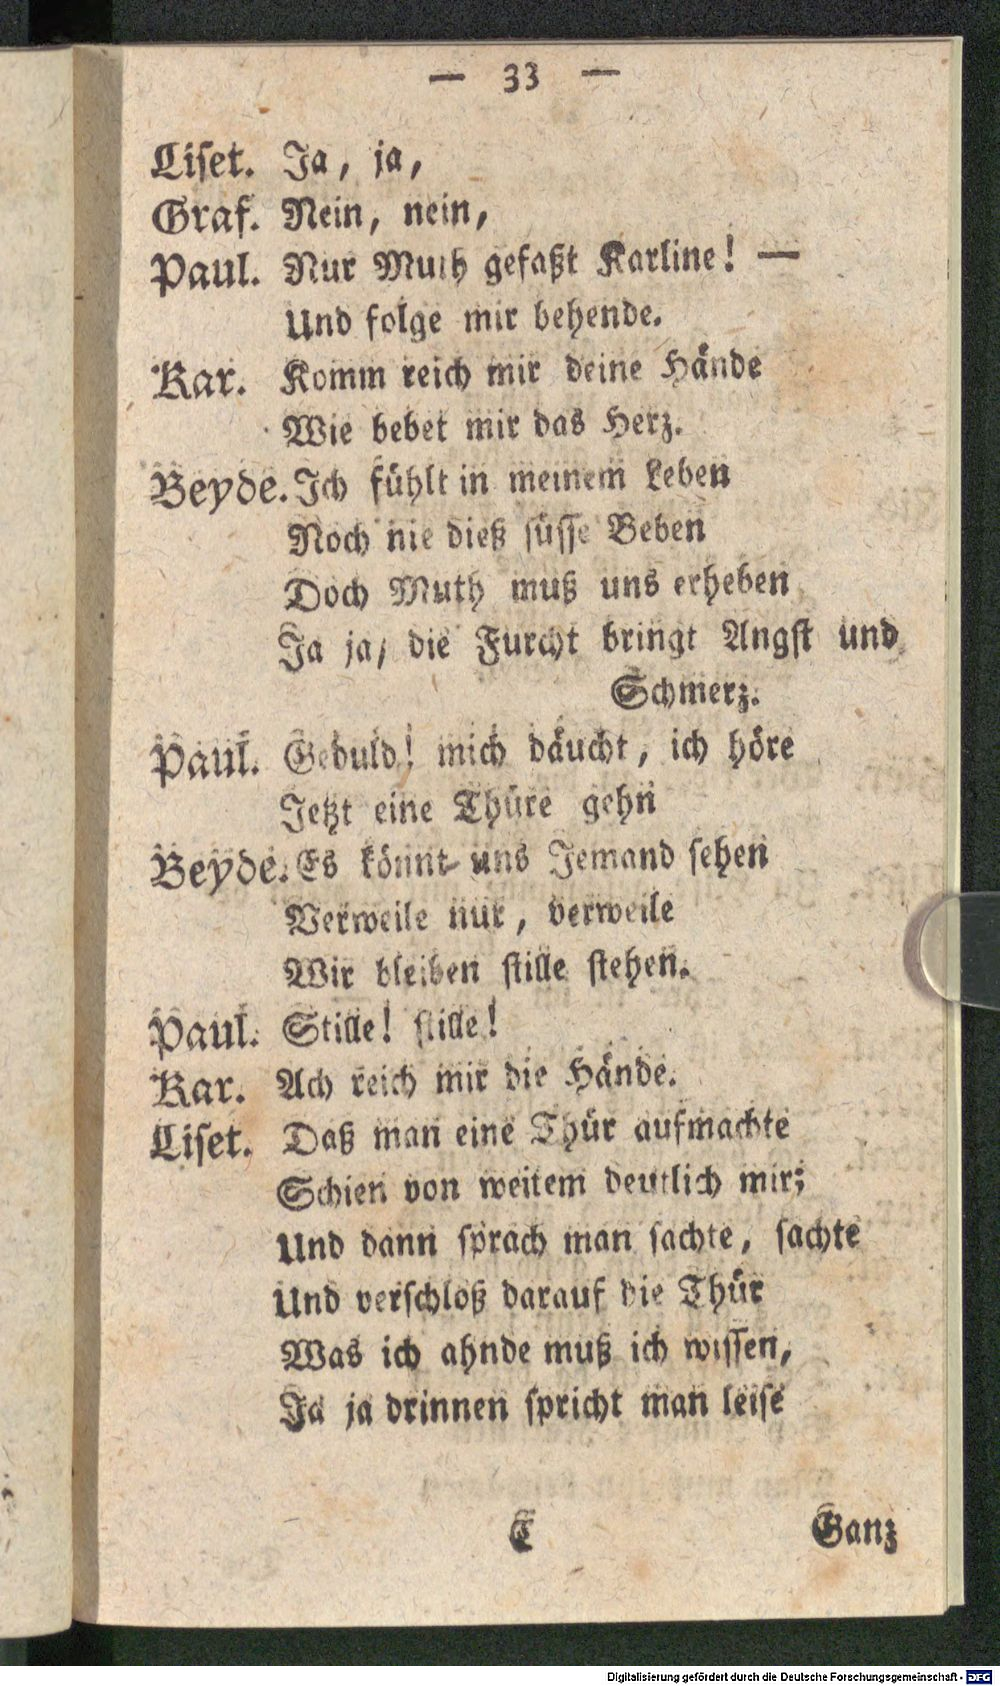 — 33 —
Liſet. Ja, ja,
Graf. Nein, nein,
Paul. Nur Muth gefaßt Karline! —
Und folge mir behende.
Kar. Komm reich mir deine Hände
Wie bebet mir das Herz.
Beyde. Ich fühlt in meinem Leben
Noch nie dieß ſüſſe Beben
Doch Muth muß uns erheben
Ja ja, die Furcht bringt Angſt und
Schmerz.
Paul. Geduld! mich däucht, ich höre
Jetzt eine Thüre gehn
Beyde. Es könnt uns Jemand ſehen
Verweile nur, verweile
Wir bleiben ſtille ſtehen.
Paul. Stille! ſtille!
Kar. Ach reich mir die Hände.
Liſet. Daß man eine Thür aufmachte
Schien von weitem deutlich mir;
Und dann ſprach man ſachte, ſachte
Und verſchloß darauf die Thür
Was ich ahnde muß ich wiſſen,
Ja ja drinnen ſpricht man leiſe
C Ganz
Digitalisierung gefördert durch die Deutsche Forschungsgemeinschaft - DFG